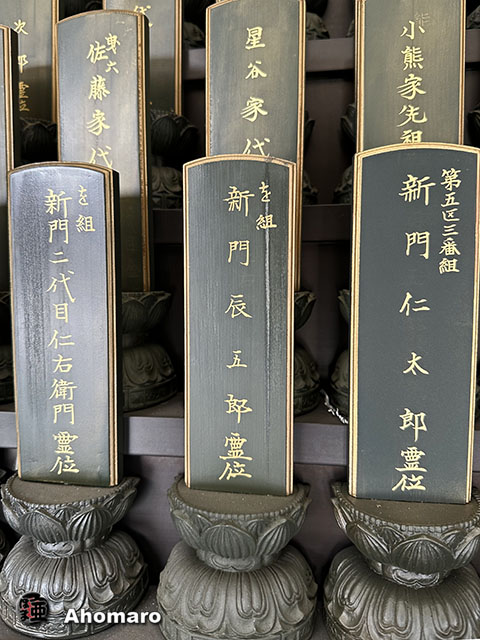 小熊家先祖
星谷家代
佐藤家代
郎霊位
第五区三番組
新門仁太郎霊位
を組
新門辰五郎霊位
を組
新門二代目仁右衛門霊位
Ahomaro